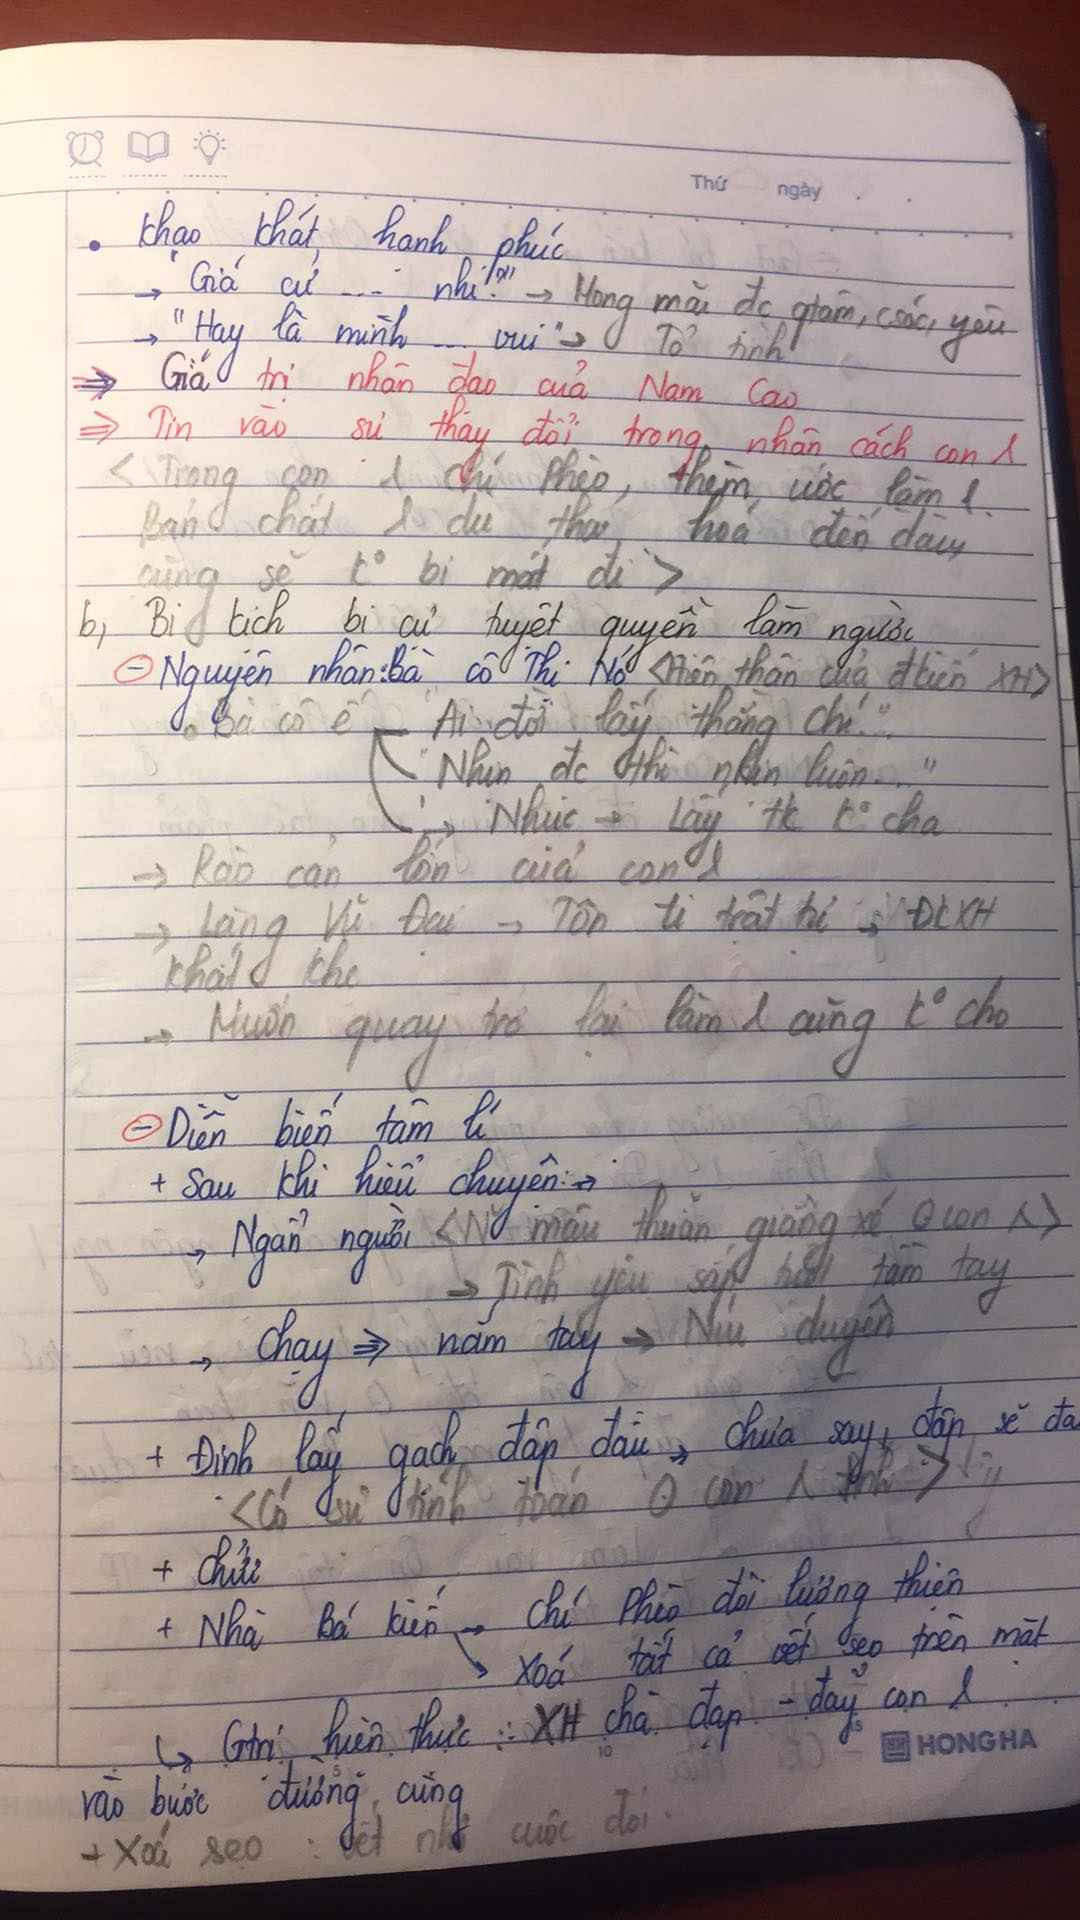 Thứ ngày
• Khao khát hạnh phúc
→ "Giá cứ ... nhỉ?" → Mong mãi đc qtâm, csóc, yêu
→ "Hay là mình ... vui" → Tỏ tình
⇒ Giá trị nhân đạo của Nam Cao
⇒ Tin vào sự thay đổi trong nhân cách con λ
< Trong con λ Chí Phèo, thèm, ước làm λ.
Bản chất λ dù tha hoá đến đâu,
cũng sẽ k° bị mất đi >
b, Bi kịch bị cự tuyệt quyền làm người
- Nguyên nhân: Bà cô Thị Nở <Hiện thân của đkiến XH>
. Bà cô ế "Ai đời lấy thằng Chí..."
"Nhịn đc thì nhịn luôn..."
→ Nhục → Lấy tk k° cha
→ Rào cản lớn của con λ
→ Làng Vũ Đại → Tôn ti trật tự → ĐKXH
khắt khe
→ Muốn quay trở lại làm λ cũng k° cho
- Diễn biến tâm lí
+ Sau khi hiểu chuyện: →
→ Ngẩn người < mâu thuẫn giằng xé con λ>
→ Tình yêu sắp tầm tay
→ Chạy ⇒ nắm tay → Níu duyên
+ Định lấy gạch đập đầu → chưa say, đập sẽ đa
<Có sự tính toán con λ tỉnh>
+ Chửi
+ Nhà Bá Kiến → Chí Phèo đòi lương thiện
→ Xoá tất cả vết sẹo trên mặt
↳ Gtrị hiện thực : XH chà đạp - đẩy con λ
HONG HA
vào bước đường cùng
+ Xoá sẹo : vết nhơ cuộc đời.